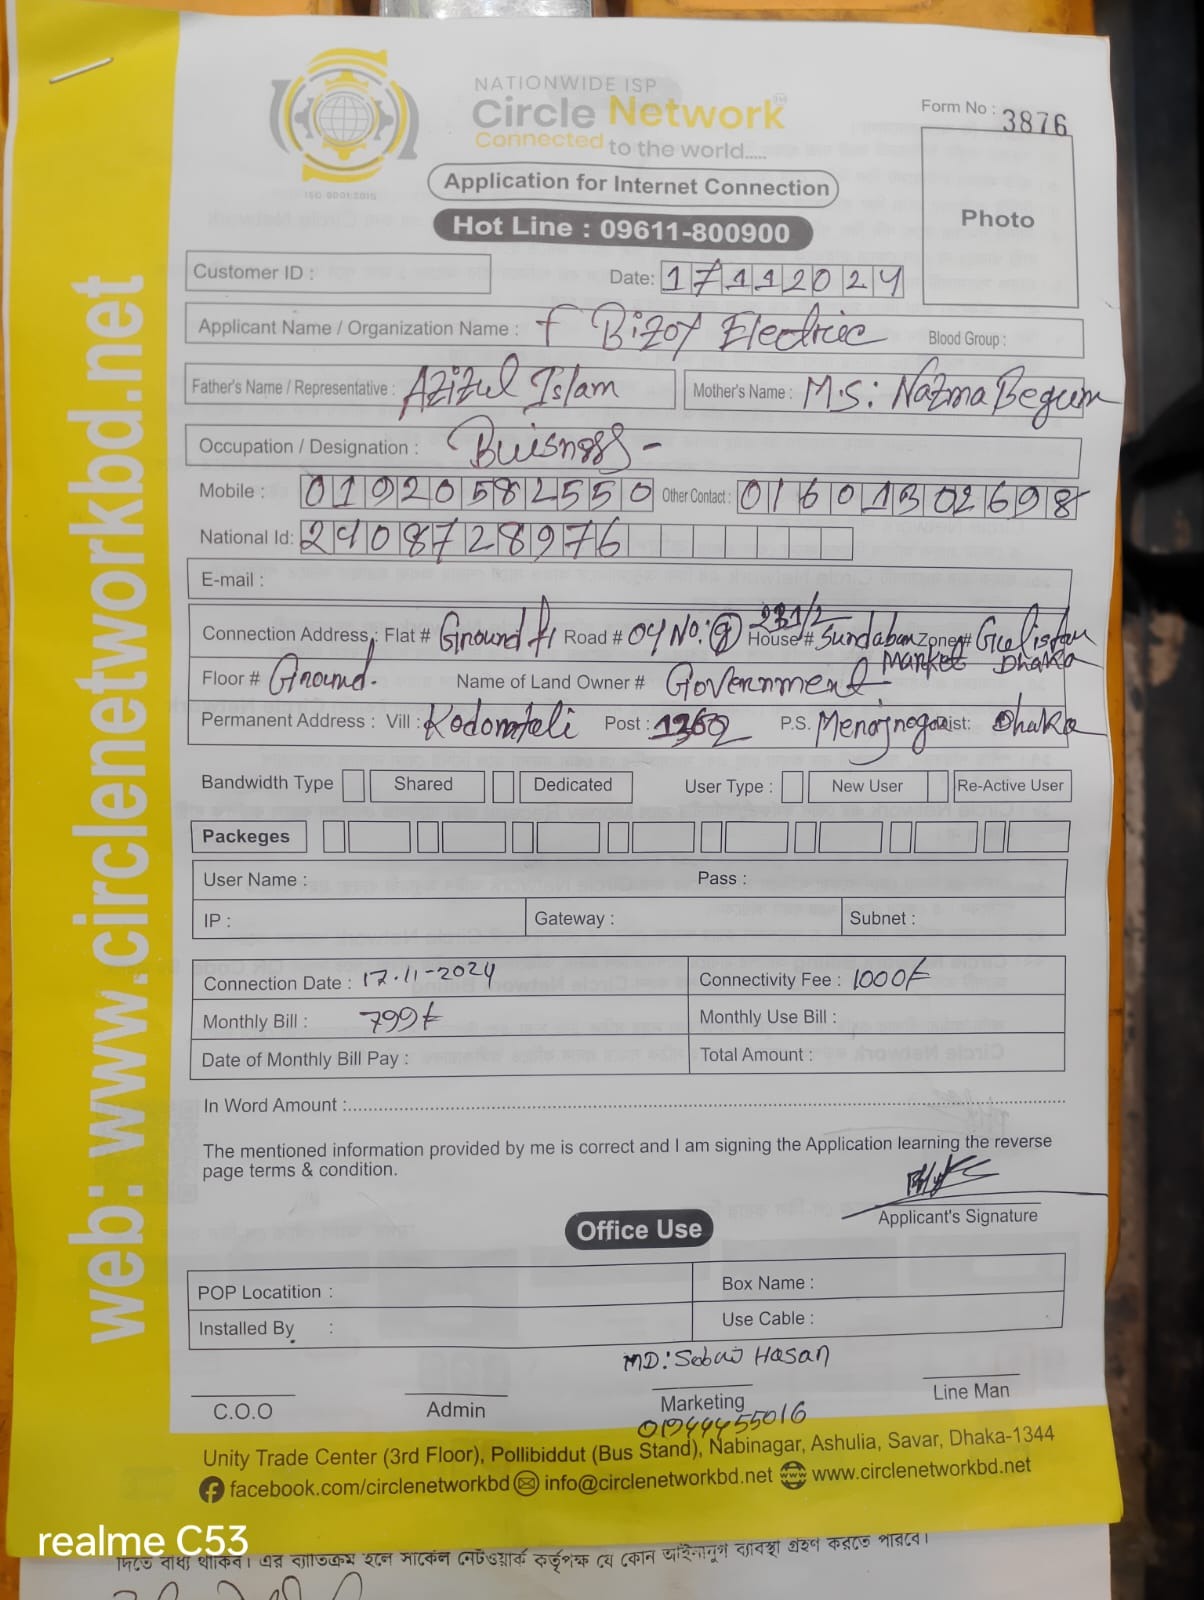 NATIONWIDE ISP
Circle Network
Connected to the world.....
ISO 9001:2015
Form No : 3876
Application for Internet Connection
Photo
Hot Line : 09611-800900
Customer ID :
Date: 17112024
Applicant Name / Organization Name : F Bizoy Electric Blood Group :
Father's Name / Representative : Azizul Islam Mother's Name : M.S: Nazma Begum
Occupation / Designation : Buisness -
Mobile : 01920582550 Other Contact : 01601302698
National Id: 2408728976
E-mail :
Connection Address, : Flat # Ground fl Road # 04 No: House # 231/2 Sundaban Market Zone # Gulistan Dhaka
Floor # Ground. Name of Land Owner # Government
Permanent Address : Vill : Kodomtali Post : 1362 P.S. Dist: Dhaka
Bandwidth Type Shared Dedicated User Type : New User Re-Active User
Packeges
User Name : Pass :
IP : Gateway : Subnet :
Connection Date : 17-11-2024 Connectivity Fee : 1000/-
Monthly Bill : 799/- Monthly Use Bill :
Date of Monthly Bill Pay : Total Amount :
In Word Amount :
The mentioned information provided by me is correct and I am signing the Application learning the reverse
page terms & condition.
Applicant's Signature
Office Use
POP Locatition : Box Name :
Installed By : Use Cable :
MD: Hasan
C.O.O Admin Marketing Line Man
01944455016
Unity Trade Center (3rd Floor), Pollibiddut (Bus Stand), Nabinagar, Ashulia, Savar, Dhaka-1344
facebook.com/circlenetworkbd info@circlenetworkbd.net www.circlenetworkbd.net
web: www.circlenetworkbd.net
realme C53
দিতে বাধ্য থাকিব। এর ব্যতিক্রম হলে সার্কেল নেটওয়ার্ক কর্তৃপক্ষ যে কোন আইনানুগ ব্যবস্থা গ্রহণ করতে পারবে।